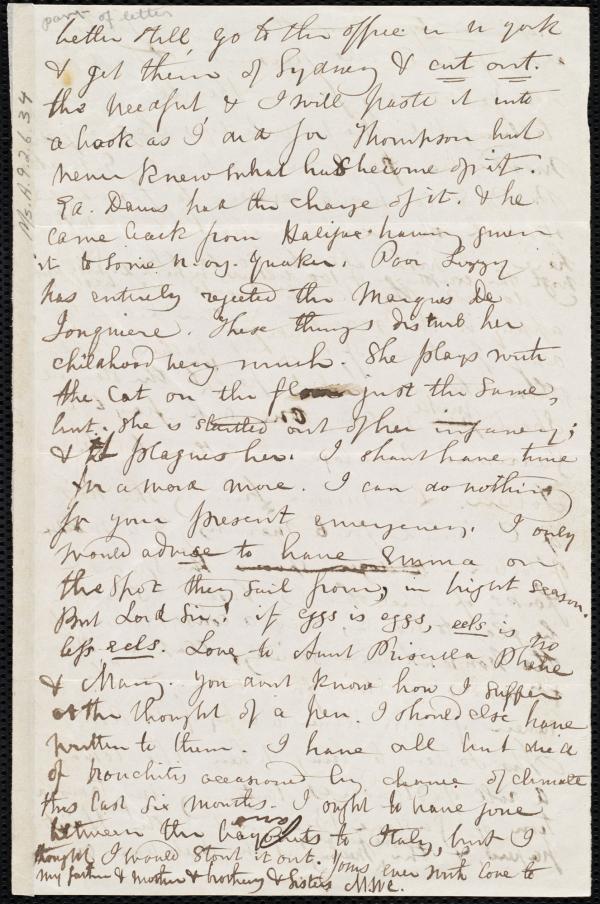 part of letter
Ms.A.9.2.6.34
better still, go to the office in n york
& get them of Sydney & cut out.
the needful & I will paste it into
a book as I did for Thompson but
never knew what had become of it.
Ed. Davis had the charge of it. & he
came back from Halifax having given
it to some n. Quaker. Poor Lizzy
has entirely rejected the Marquis De
Jonquiere. These things disturb her
childhood very much. She plays with
the cat on the floor just the same,
but. she is startled out of her infancy;
& it plagues her. I shant have time
for a word more. I can do nothing
for your present emergency. I only
would advise to have Emma on
the spot they sail from, in bright season.
But Lord Sir! if eggs is eggs, eels is no
less eels. Love to Aunt Priscilla Phebe
& Mary. You dont know how I suffer
at the thought of a pen. I should else have
written to them. I have all but died
of bronchitis occasioned by change of climate
this last six months. I ought to have gone
between the and to Italy, but I
thought I would stout it out. Yours ever with love to
my father & mother & brothers & Sisters M.W.C.